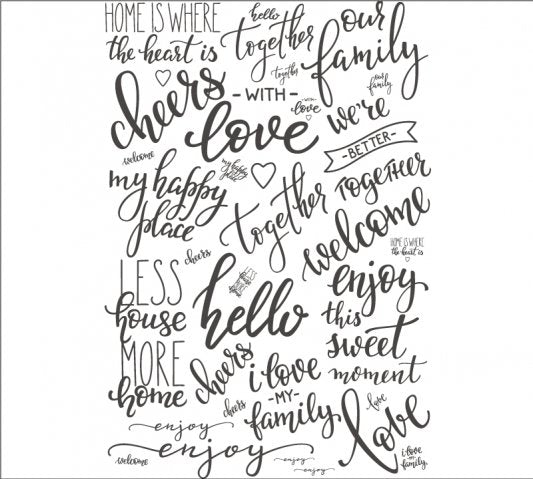 HOME IS WHERE
the heart is
hello
together
together
our
family
our
family
cheers
-WITH-
love
with
love
we're
-BETTER-
TOGETHER
welcome
my happy
place
my happy
place
together
welcome
HOME IS WHERE
the heart is
cheers
LESS
house
MORE
home
hello
enjoy
this
sweet
moment
cheers
i love
-MY-
family
cheers
love
love
enjoy
enjoy
welcome
enjoy
enjoy
i love
-MY-
family